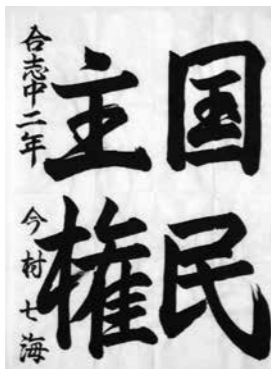 国民
主権
合志中二年 今村七海